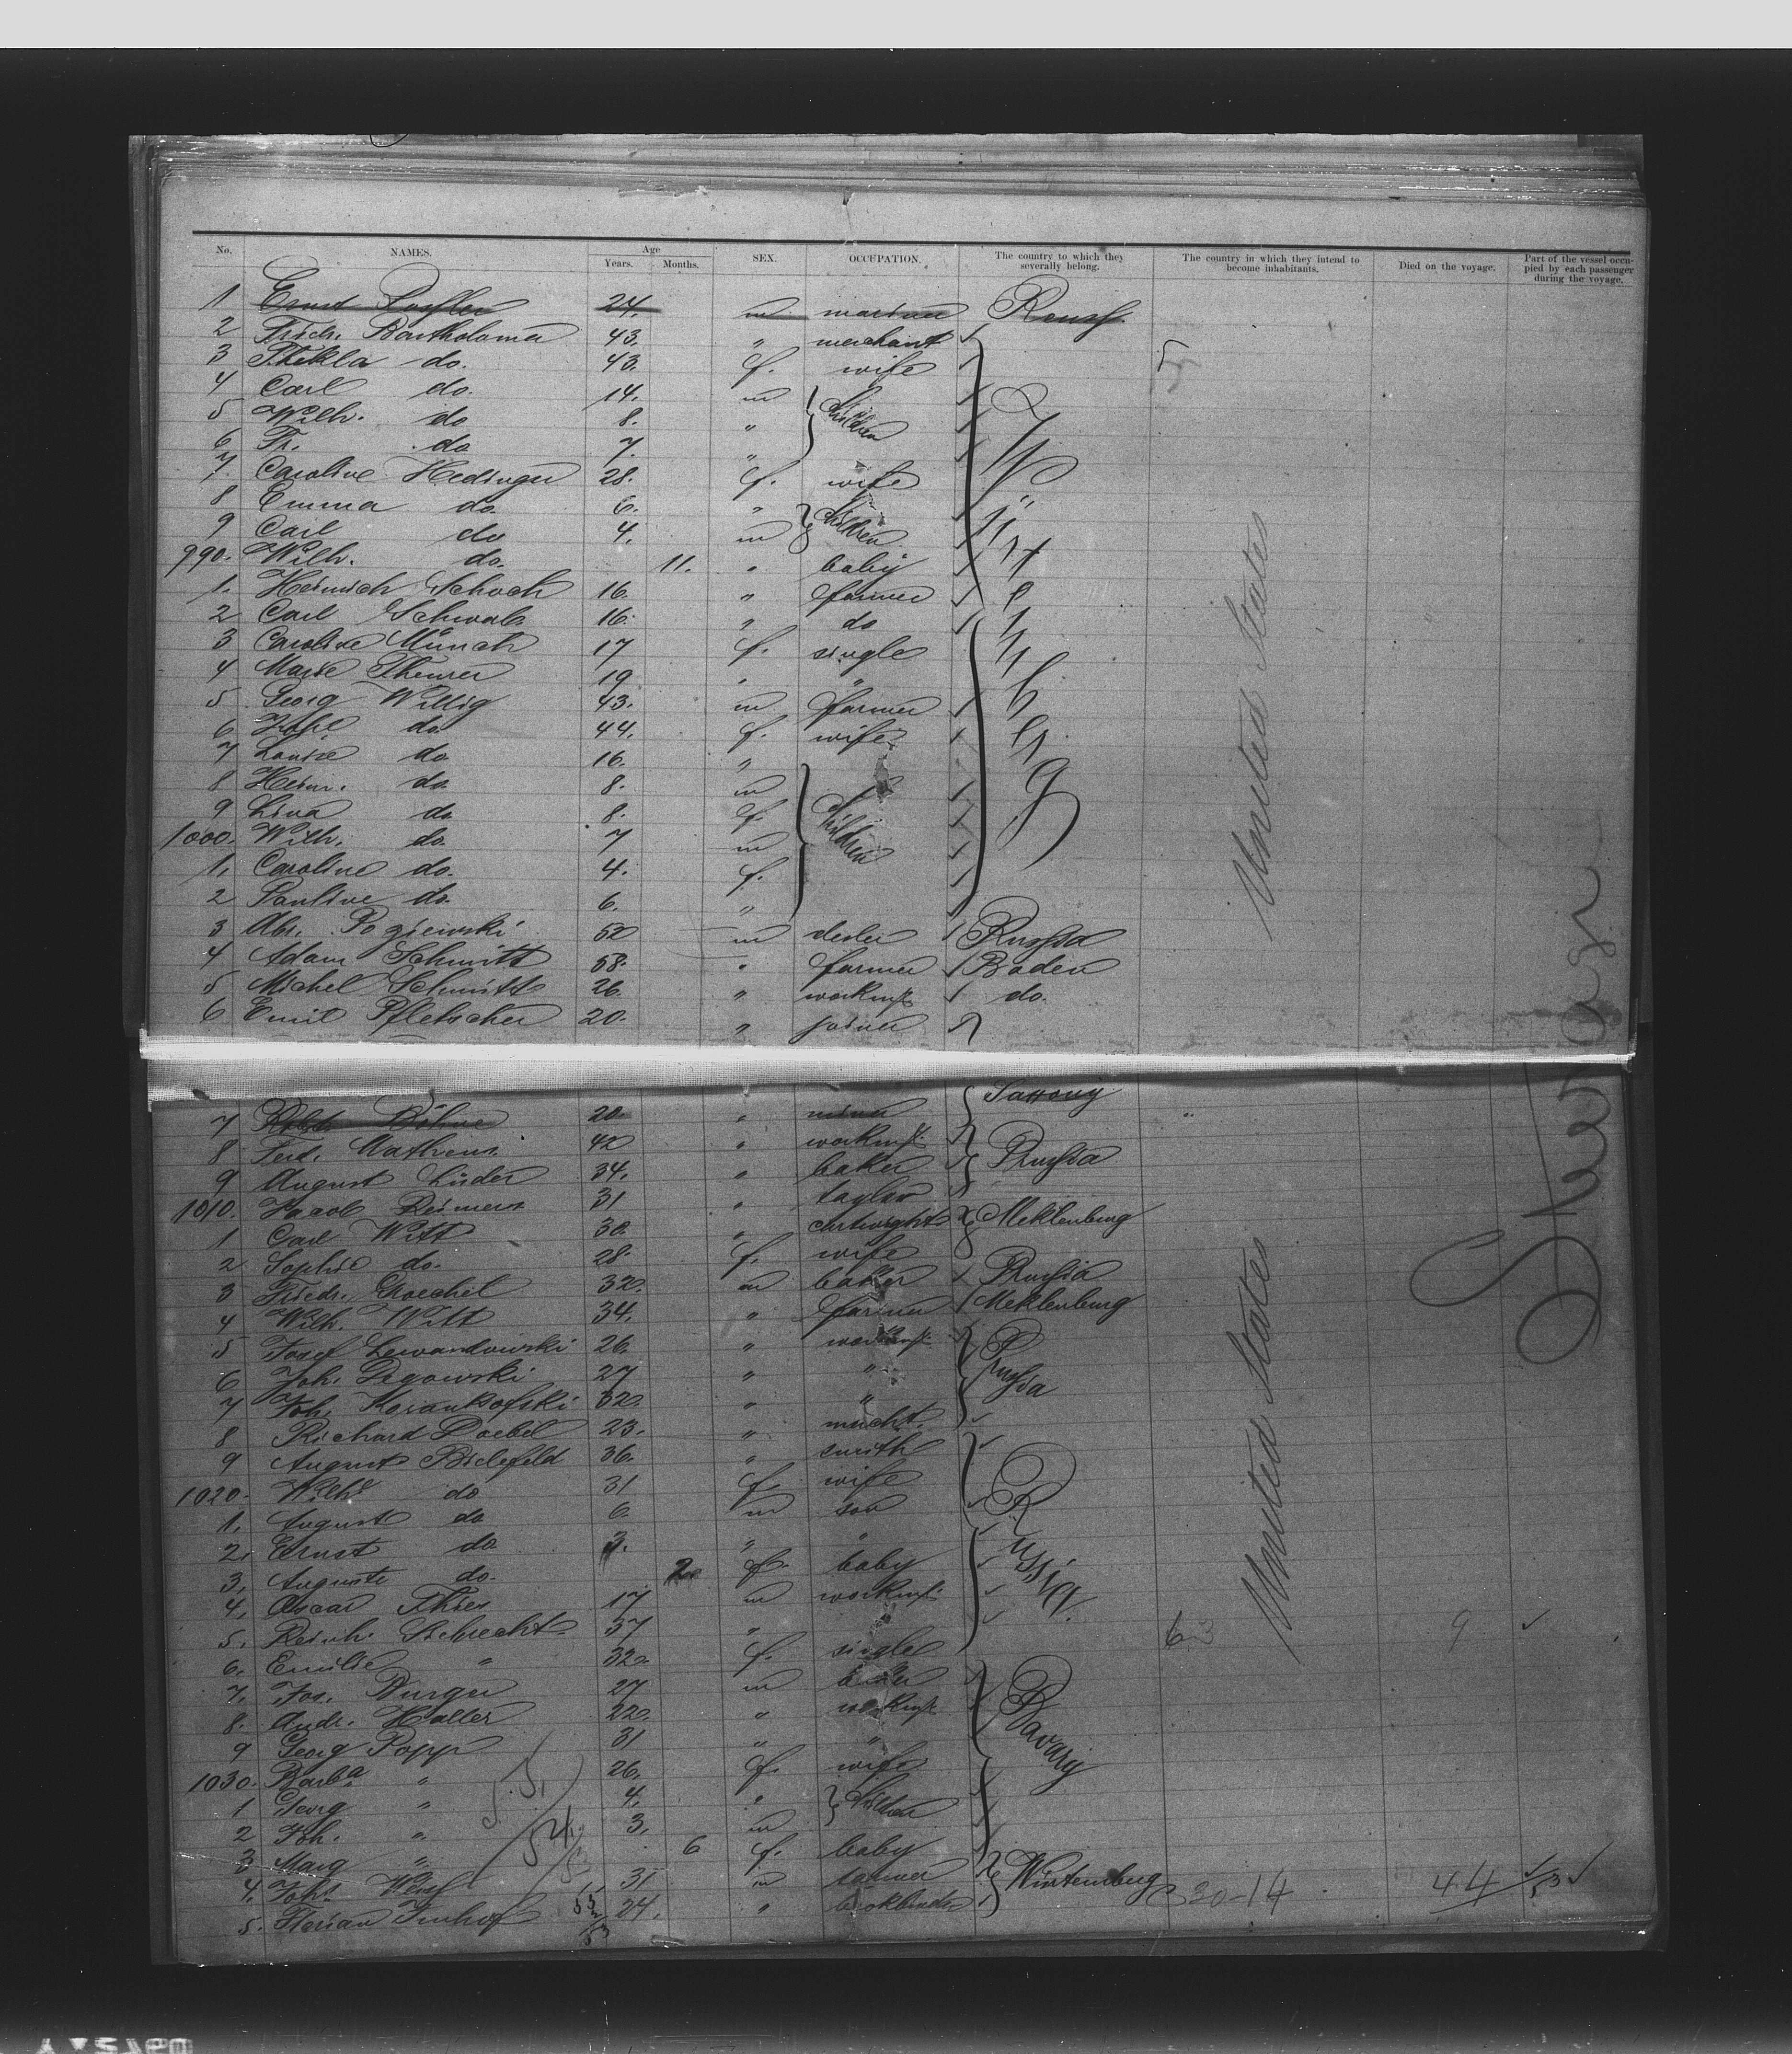 No. NAMES. Age Years. Months. SEX. OCCUPATION. The country to which they severally belong. The country in which they intend to become inhabitants. Died on the voyage. Part of the vessel occupied by each passenger during the voyage.
1 Ernst 24. m Reuss
2 Friedr. Bartholomä 43. " merchant
3 Thekla do. 43. f. wife
4 Carl do. 14. m children
5 Wilh. do 8. "
6 Fr. do 7. "
7 Caroline Hedinger 28. f. wife Württemberg
8 Emma do. 6. " children
9 Carl do 4. m
990. Wilh. do. 11. " baby
1. Heinrich Schoch 16. " farmer
2 Carl Schwab 16. " do
3 Caroline Münch 17 f. single
4 Marie Theurer 19 " "
5 Georg Willig 43. m farmer
6 do. 44. f. wife
7 Louise do. 16. "
8 Heinr. do. 8. m children
9 Lina do 8. f.
1000. Wilh. do. 7 m
1. Caroline do. 4. f.
2 Pauline do. 6. "
3 Abr. 52 m Russia
4 Adam Schmitt 58. " farmer Baden
5 Michel Schmitt 26. " workm. do.
6 Emil Pfletscher 20. " joiner
United States
7 Böhme 20. " Saxony
8 Ferd. Mathews 42 " workm.
9 August Lüder 34. " baker Prussia
1010. Jacob Reimers 31 " taylor
1 Carl Witt 30. " cartwright Meklenburg
2 Sophie do. 28. f. wife
3 Friedr. Goechel 32. m baker Prussia
4 Wilh. Witt 34. " farmer Meklenburg
5 Josef Lewandowski 26. " workm.
6 Joh. 27 " " Prussia
7 Joh. 32. " "
8 Richard Doebel 23. " mercht.
9 August Bielefeld 36. " smith
1020. Wilhe do 31 f. wife
1. August do 6. m son
2. Ernst do. 3. " "
3. Auguste do. 2 f. baby Russia
4. Oscar Thies 17 m workm.
5. Reinh. 37 "
6. Emilie " 32. f. single 63 9
7. Jos. Burger 27 m
8. Andr. Haller 22. " workm. Bavary
9 Georg Popp 31 " "
1030. Barba " 26. f. wife
1 Georg " 4. " children
2 Joh. " 3. m
3 Marg " 6 f. baby
4. Joh. 31 m farmer Wirtemburg 30-14 44
5. Florian Imhof 24. " bookbinder
United States